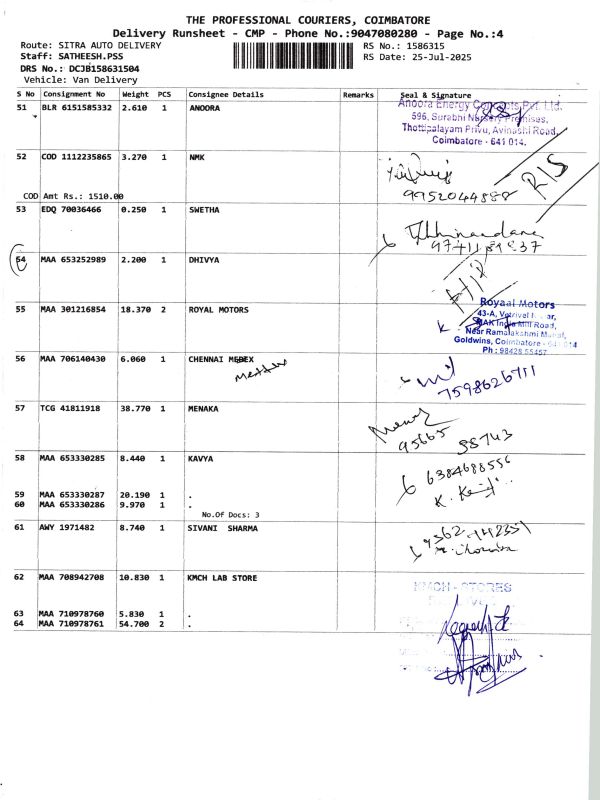 THE PROFESSIONAL COURIERS, COIMBATORE
Delivery Runsheet - CMP - Phone No.:9047080280 - Page No.:4
Route: SITRA AUTO DELIVERY
RS No.: 1586315
Staff: SATHEESH.PSS
RS Date: 25-Jul-2025
DRS No.: DCJB158631504
Vehicle: Van Delivery
S No Consignment No Weight PCS Consignee Details Remarks Seal & Signature
51 BLR 6151585332 2.610 1 ANOORA
Anoora Energy Concepts Pvt. Ltd.
596, Surabhi Nursery Premises,
Thottipalayam Privu, Avinashi Road,
Coimbatore - 641 014.
52 COD 1112235865 3.270 1 NMK
9952044888
R/S
COD Amt Rs.: 1510.00
53 EDQ 70036466 0.250 1 SWETHA
54 MAA 653252989 2.200 1 DHIVYA
55 MAA 301216854 18.370 2 ROYAL MOTORS
Royaal Motors
43-A, Vetrivel
Road,
Near Ramalakshmi Mahal,
Goldwins, Coimbatore - 641 014
Ph : 98428 55457
56 MAA 706140430 6.060 1 CHENNAI MEDEX
7598626711
57 TCG 41811918 38.770 1 MENAKA
95665 58743
58 MAA 653330285 8.440 1 KAVYA
6384688556
59 MAA 653330287 20.190 1 .
60 MAA 653330286 9.970 1 .
No.Of Docs: 3
61 AWY 1971482 8.740 1 SIVANI SHARMA
62 MAA 708942708 10.830 1 KMCH LAB STORE
KMCH - STORES
63 MAA 710978760 5.830 1 .
64 MAA 710978761 54.700 2 .